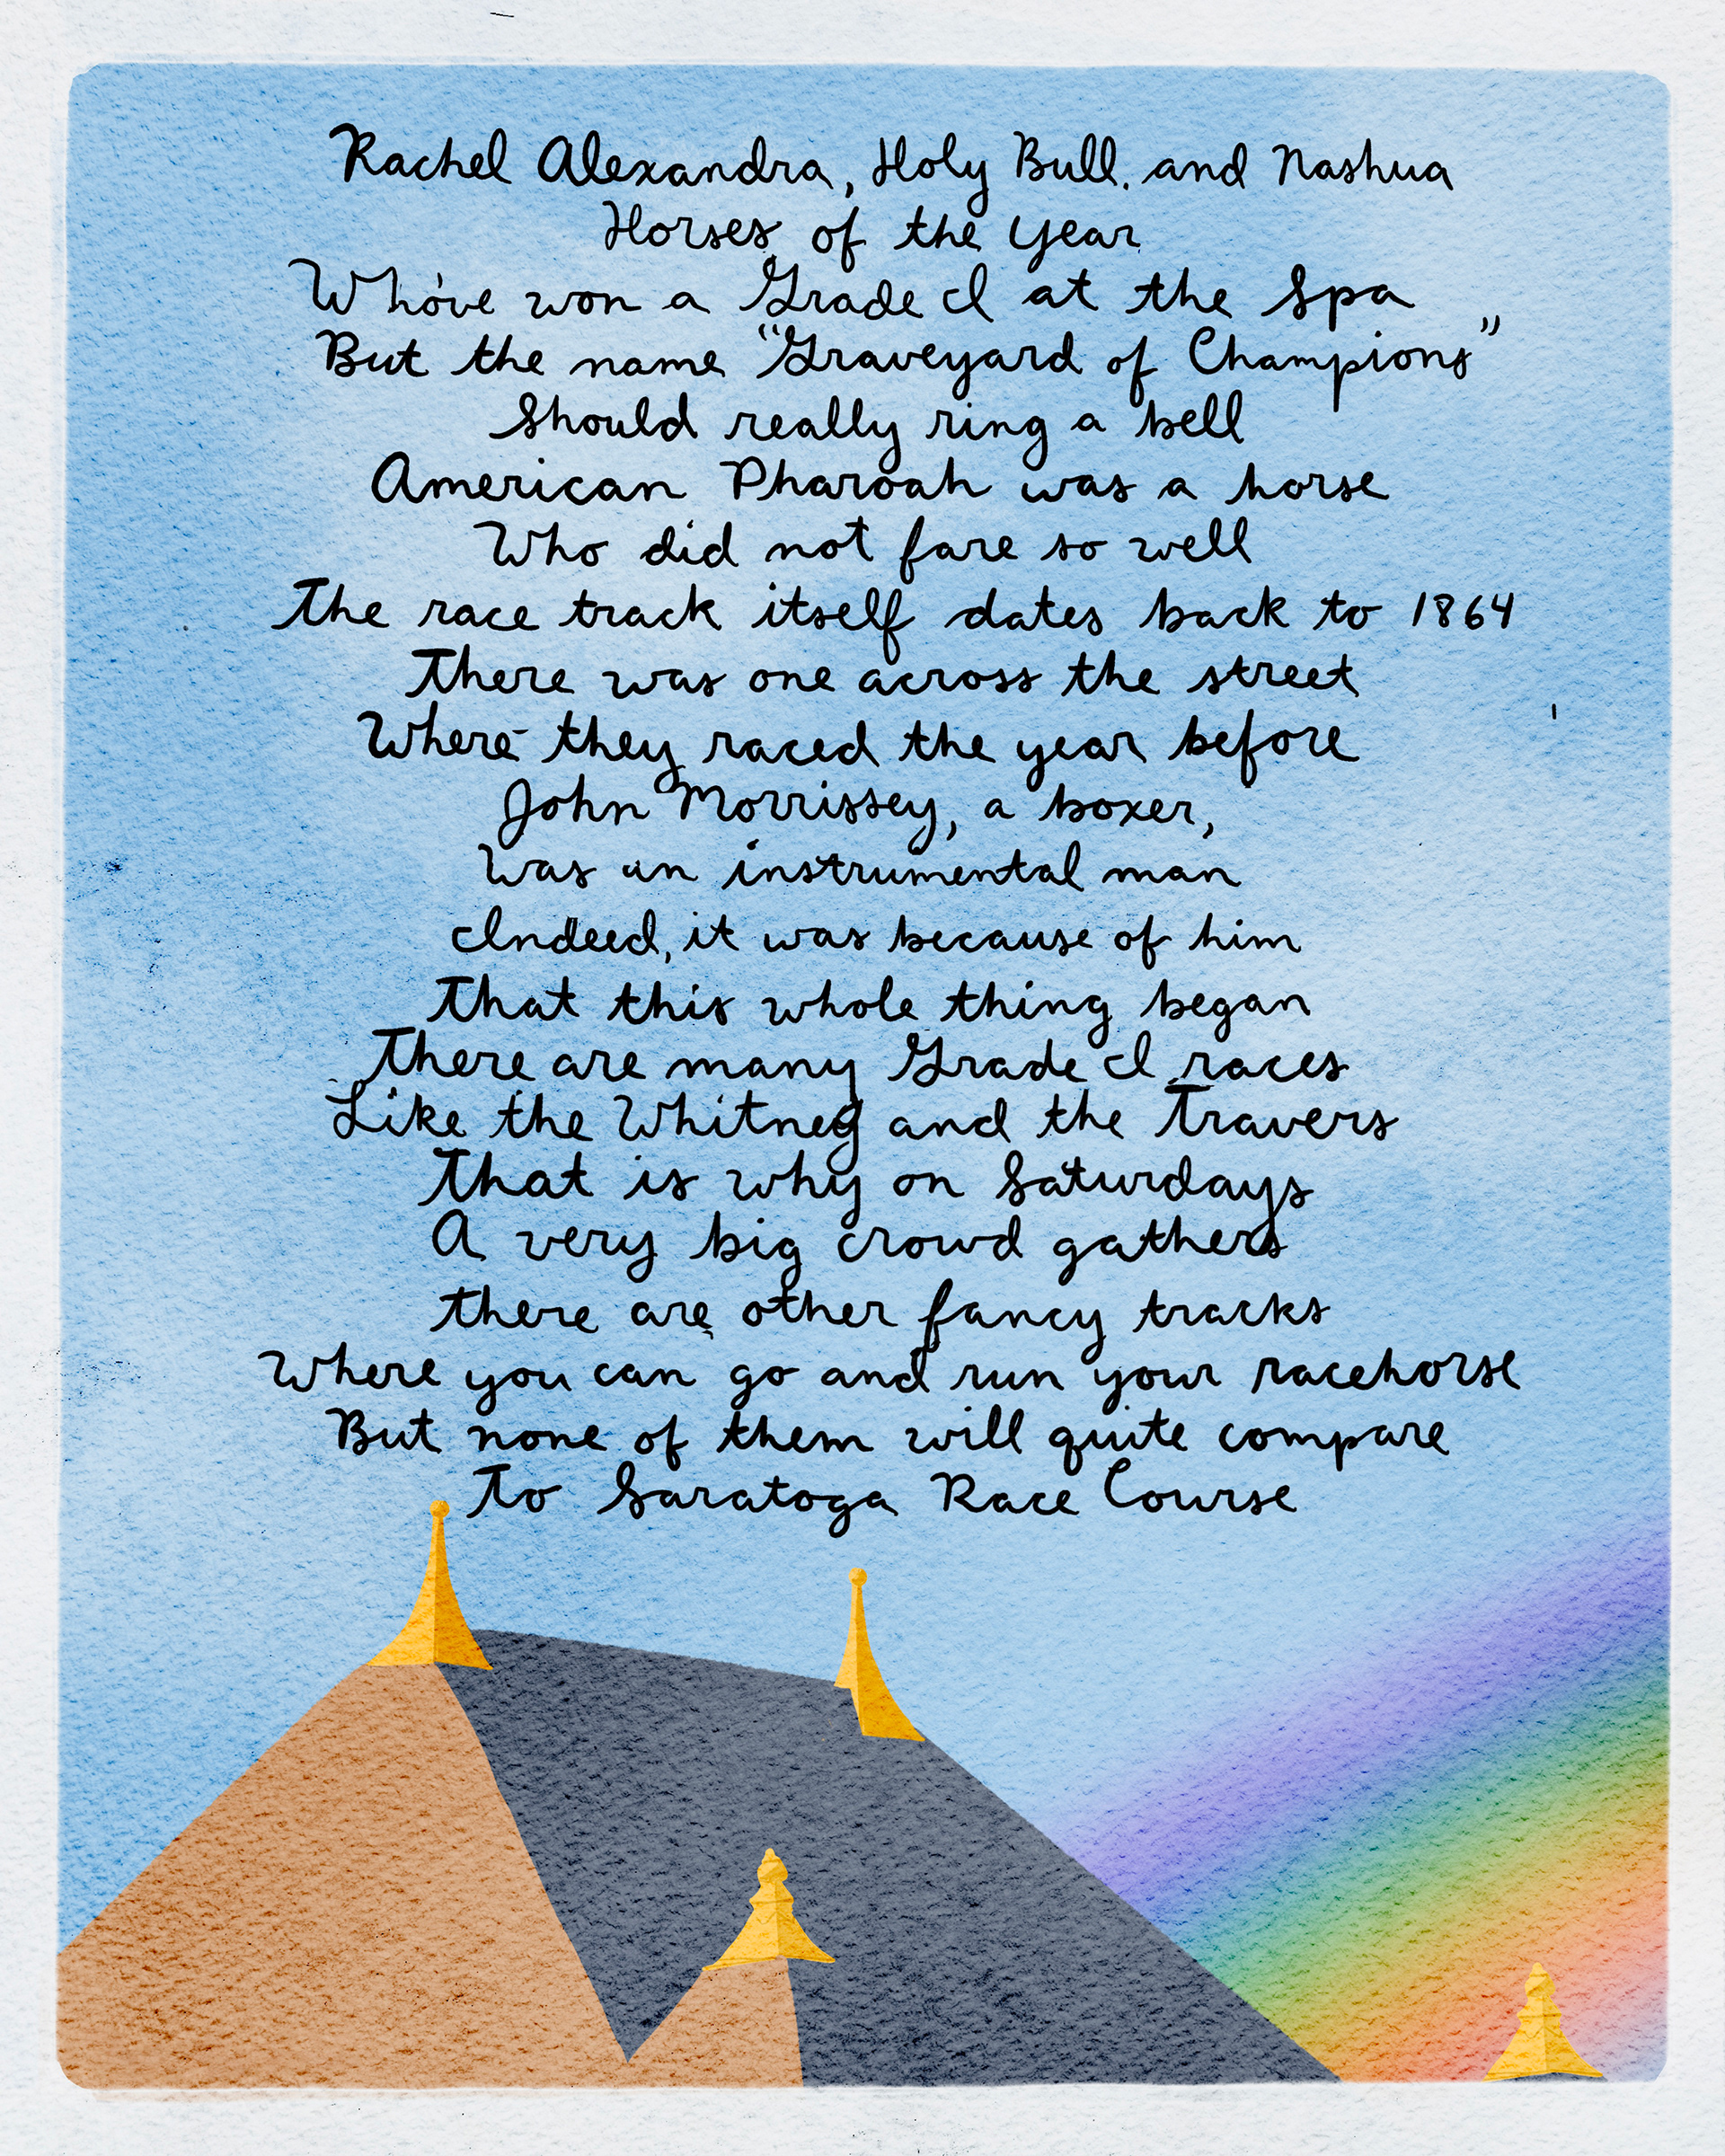 Rachel Alexandra, Holy Bull, and Nashua
Horses of the Year
Who've won a Grade I at the Spa
But the name "Graveyard of Champions"
Should really ring a bell
American Pharoah was a horse
Who did not fare so well
The race track itself dates back to 1864
There was one across the street
Where they raced the year before
John Morrissey, a boxer,
Was an instrumental man
Indeed, it was because of him
That this whole thing began
There are many Grade I races
Like the Whitney and the Travers
That is why on Saturdays
A very big crowd gathers
there are other fancy tracks
Where you can go and run your racehorse
But none of them will quite compare
To Saratoga Race Course